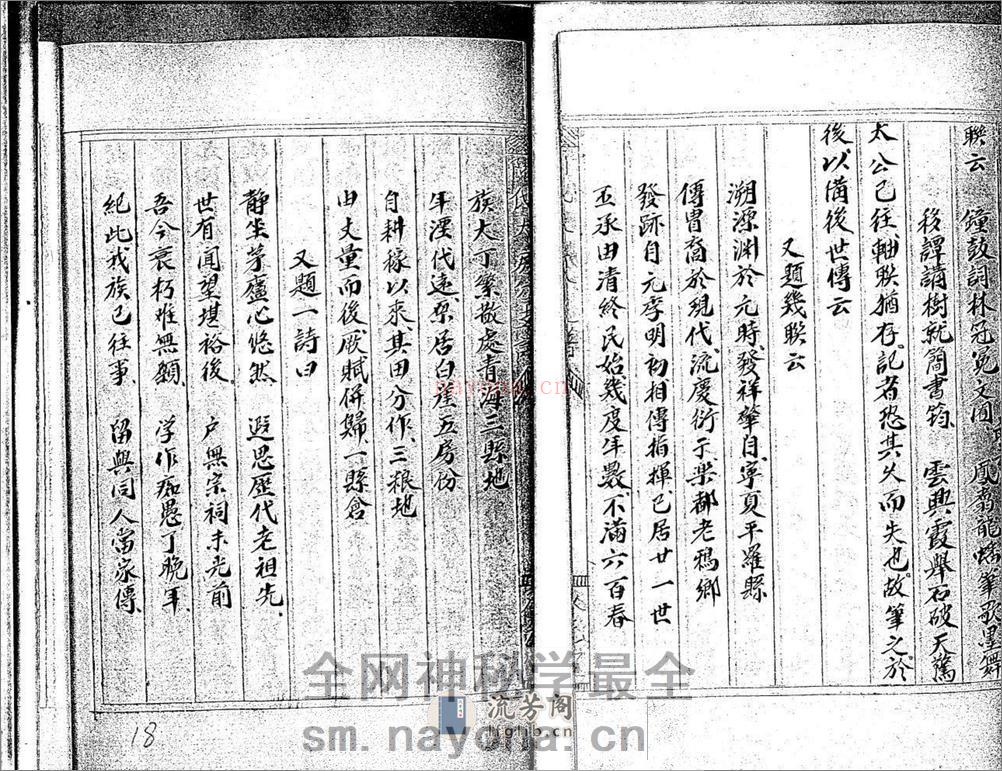 聯云 鐘鼓詞林冠冕文囿 鳳翥龍蟠筆歌墨舞
移譚講樹就簡書筠 雲興霞舉石破天驚
太公已往、軸聯猶存、記者恐其久而失也、故筆之於
後、以備後世傳云
又題幾聯云
溯源淵於元時、發祥肇自、寧夏平羅縣
傳冑裔於現代、流慶衍于、樂都老鴉鄉
發跡自元季明初相傳指揮、已居廿一世
丕承由清終民始幾度年數、不滿六百春
族大丁繁散處青海三縣地
年湮代遠栗居白崖五房份
自耕稼以來、其田分作、三粮地
由丈量而後、厥賦併歸、一縣倉
又題一詩曰
靜坐茅廬心悠然 遐思歷代老祖先、
世有聞望堪裕後、 户無宗祠未光前
吾今衰朽唯無願、 学作痴愚了晚年、
紀此我族已往事、 留與同人當家傳、
18
全网神秘学最全
sm.nayona.cn
nayona.cn
流芳阁
lfglib.cn